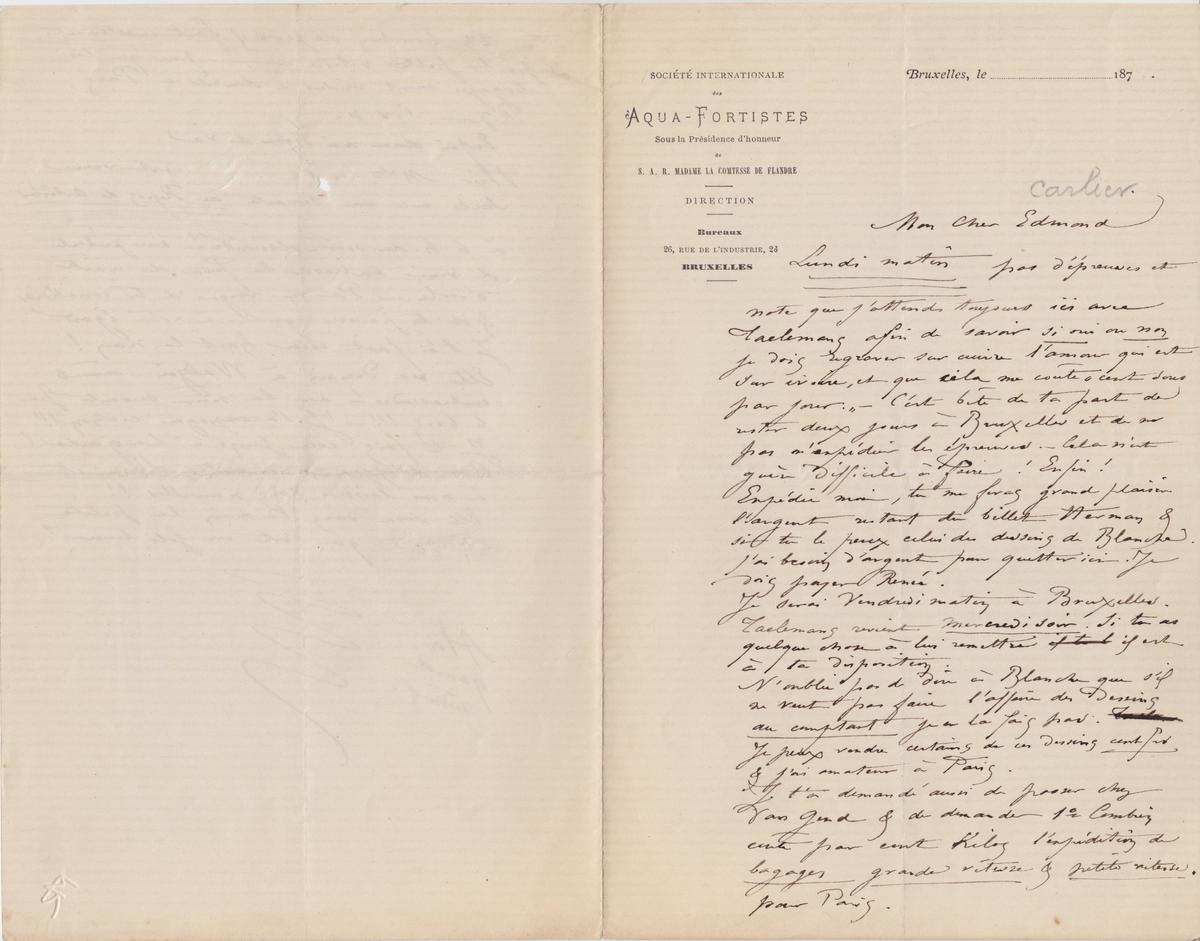 SOCIÉTÉ INTERNATIONALE
des
AQUA-FORTISTES
Sous la Présidence d'honneur
de
S. A. R. MADAME LA COMTESSE DE FLANDRE
DIRECTION
Bureaux
26, RUE DE L'INDUSTRIE, 26
BRUXELLES
Bruxelles, le 187 .
Carlier.
Mon cher Edmond
Lundi matin pas d'épreuves et
note que j'attends toujours ici avec
Taelemans afin de savoir si oui ou non
je dois regraver sur cuivre l'amour qui est
sur ivoire, et que cela me coute cent sous
par jour. „— C'est bête de ta part de
rester deux jours à Bruxelles et de ne
pas m'expédier les épreuves. — Cela n'est
guère difficile à faire ! Enfin !
Expédie moi, tu me feras grand plaisir
l'argent restant du billet Herman &
si tu le peux celui des dessins de Blanche.
J'ai besoin d'argent pour quitter ici. Je
dois payer René.
Je serai Vendredi matin à Bruxelles.
Taelemans revient mercredi soir. Si tu as
quelque chose à lui remettre il est
à ta disposition.
N'oublie pas de dire à Blanche que s'il
ne veut pas faire l'affaire des Dessins
au comptant je ne la fais pas.
Je peux vendre certains de ces dessins cent
& j'ai amateur à Paris.
Je t'ai demandé aussi de passer chez
Van Gend & de demander 1o Combien
coute par cent Kilos l'expédition de
bagages grande vitesse & petite vitesse.
pour Paris.